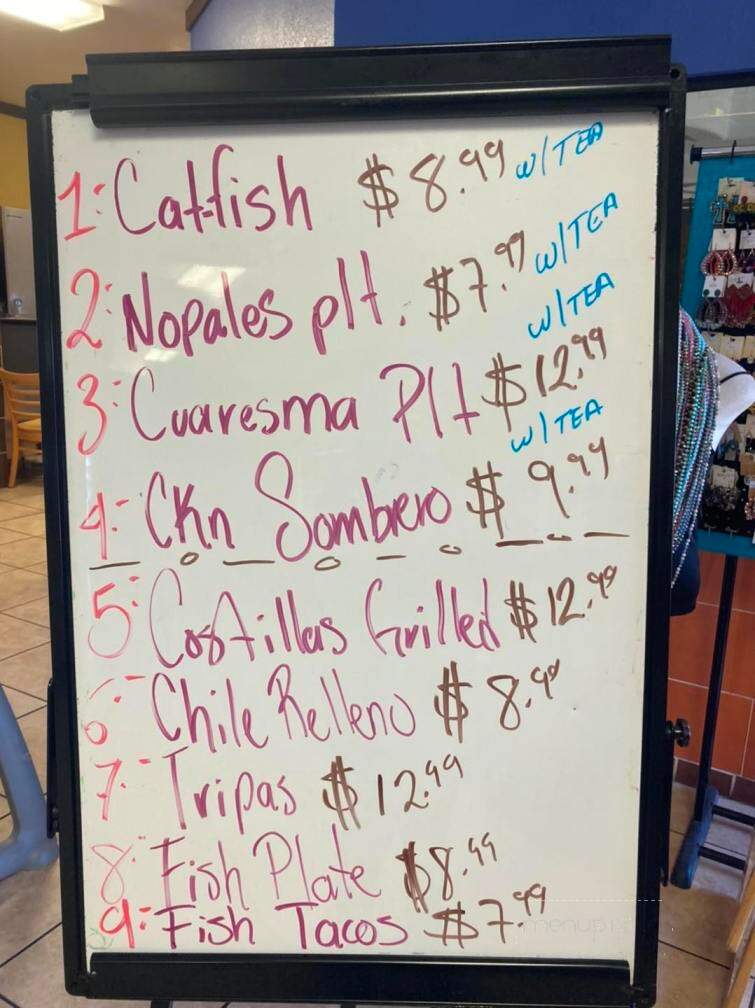 1: Catfish $8.99 w/TEA
2: Nopales plt. $7.99 w/TEA
3: Cuaresma Plt $12.99 w/TEA
4: Ckn Sombrero $9.99 w/TEA
5: Costillas Grilled $12.99
6: Chile Relleno $8.99
7: Tripas $12.99
8: Fish Plate $8.99
9: Fish Tacos $7.99